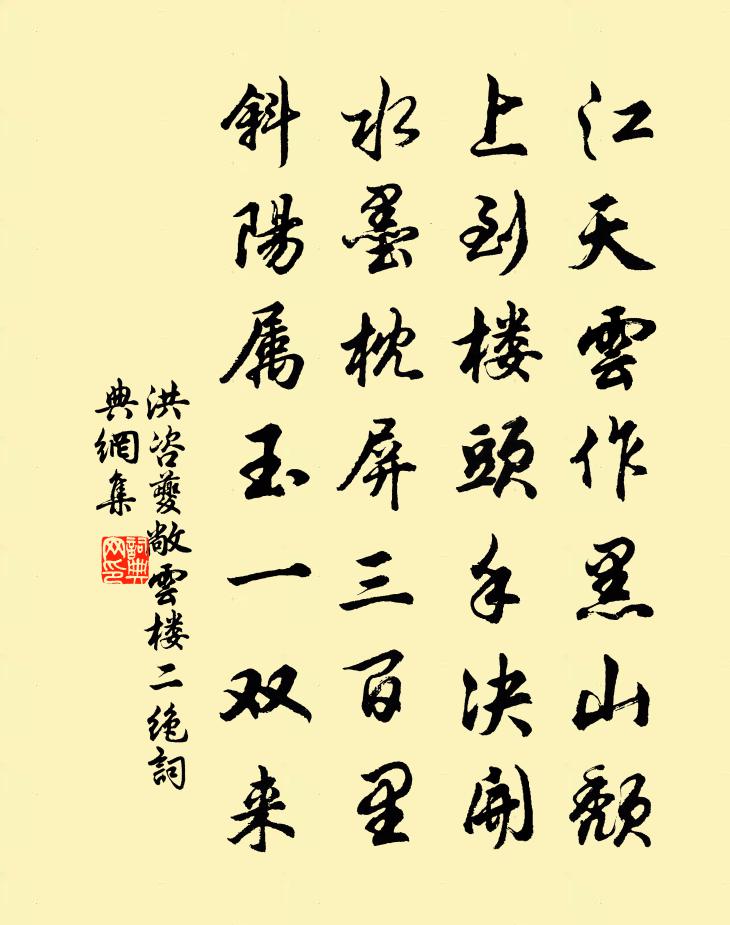 江天雲作黑山頽
上到楼頭手决開
水墨枕屏三百里
斜陽属玉一双来
洪咨夔敞雲楼二絶詞
典網集
詞典网印